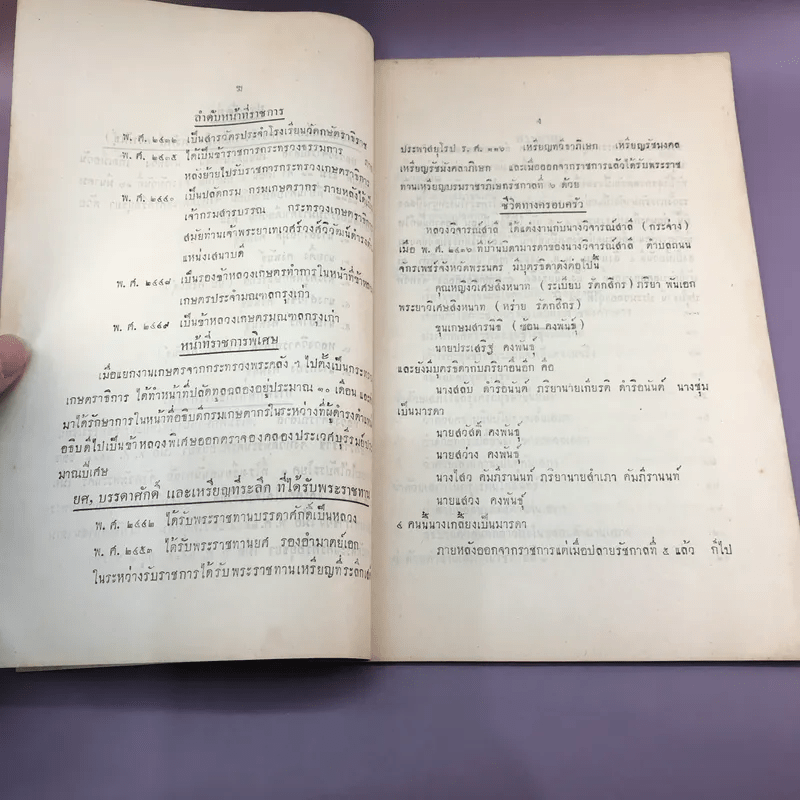 ข
ลำดับหน้าที่ราชการ
พ. ศ. ๒๔๓๒ เป็นสารวัตรประจำโรงเรียนวัดกษัตราธิราช
พ. ศ. ๒๔๓๕ ได้เป็นข้าราชการกระทรวงธรรมการ
หลังย้ายไปรับราชการกระทรวงเกษตราธิการ
พ. ศ. ๒๔๔๐ เป็นปลัดกรม กรมเกษตรากร ภายหลังได้เป็น
เจ้ากรมสารบรรณ กระทรวงเกษตราธิการ
สมัยท่านเจ้าพระยาเทเวศร์วงศ์วิวัฒน์ดำรง
แหน่งเสนาบดี
พ. ศ. ๒๔๔๘ เป็นรองข้าหลวงเกษตรทำการในหน้าที่ข้าหลวง
เกษตรประจำมณฑลกรุงเก่า
พ. ศ. ๒๔๔๙ เป็นข้าหลวงเกษตรมณฑลกรุงเก่า
หน้าที่ราชการพิเศษ
เมื่อแยกงานเกษตรจากกระทรวงพระคลัง ฯ ไปตั้งเป็นกระทรวง
เกษตราธิการ ได้ทำหน้าที่ปลัดทูลฉลองอยู่ประมาณ ๑๐ เดือน และ
มาได้รักษาการในหน้าที่อธิบดีกรมเกษตากรในระหว่างที่ผู้ดำรงตำแหน่ง
อธิบดีไปเป็นข้าหลวงพิเศษออกตราจองคลองประเวศบุรีรมย์
มาณปีเศษ
ยศ, บรรดาศักดิ์ และเหรียญที่ระลึก ที่ได้รับพระราชทาน
พ. ศ. ๒๔๔๒ ได้รับพระราชทานบรรดาศักดิ์เป็นหลวง
พ. ศ. ๒๔๕๓ ได้รับพระราชทานยศ รองอำมาตย์เอก
ในระหว่างรับราชการได้รับพระราชทานเหรียญที่ระลึก
ค
ประพาสยุโรป ร. ศ. ๑๑๖ เหรียญทวีธาภิเษก เหรียญรัชมงคล
เหรียญรัชมังคลาภิเษก และเมื่อออกจากราชการแล้วได้รับพระราช
ทานเหรียญบรมราชาภิเษกรัชกาลที่ ๖ ด้วย
ชีวิตทางครอบครัว
หลวงวิจารณ์สาลี ได้แต่งงานกับนางวิจารณ์สาลี (กระจ่าง)
เมื่อ พ. ศ. ๒๔๓๖ ที่บ้านบิดามารดาของนางวิจารณ์สาลี ตำบลถนน
จักรเพชร์จังหวัดพระนคร มีบุตรธิดาดังต่อไปนี้
คุณหญิงวิเศษสิงหนาท (ระเบียบ รัตกสิกร) ภริยา พันเอก
พระยาวิเศษสิงหนาท (หร่าย รัตกสิกร)
ขุนเกษมสารนิธิ (ช้อน คงพันธุ์)
นายประเสริฐ คงพันธุ์
และยังมีบุตรธิดากับภริยาอื่นอีก คือ
นางสลับ ดำริอนันต์ ภริยานายเกียรติ ดำริอนันต์ นางชุม
เป็นมารดา
นายสวัสดิ์ คงพันธุ์
นายสว่าง คงพันธุ์
นางไสว คัมภิรานนท์ ภริยานายลำเภา คัมภิรานนท์
นายแสวง คงพันธุ์
๔ คนนี้นางเกลี้ยงเป็นมารดา
ภายหลังออกจากราชการแต่เมื่อปลายรัชกาลที่ ๕ แล้ว ก็ไป